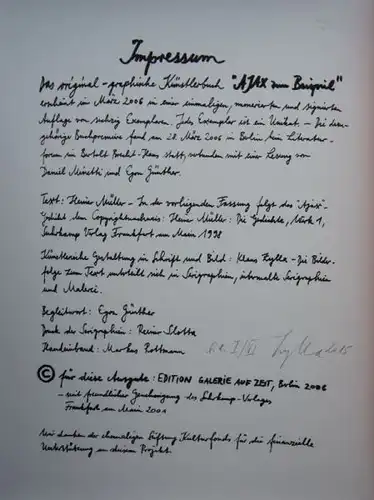 Impressum
Das original-graphische Künstlerbuch "AJAX zum Beispiel"
erscheint im März 2006 in einer einmaligen, numerierten und signierten
Auflage von sechzig Exemplaren. Jedes Exemplar ist ein Unikat – Die dazu-
gehörige Buchpremiere fand am 28. März 2006 in Berlin, im Literatur-
forum im Bertolt Brecht-Haus statt, verbunden mit einer Lesung von
Daniel Minetti und Egon Günther.
Text: Heiner Müller – In der vorliegenden Fassung folgt das "Ajax"-
Gedicht dem Copyrightnachweis: Heiner Müller: Die Gedichte, Werke 1,
Suhrkamp Verlag Frankfurt am Main 1998
Künstlerische Gestaltung in Schrift und Bild: Klaus Zylla – Die Bilder-
folge zum Text unterteilt sich in Serigraphien, übermalte Serigraphien
und Malerei.
Begleitwort: Egon Günther
Druck der Serigraphien: Reiner Slotta
Handeinband: Markus Rottmann
© für diese Ausgabe: EDITION GALERIE AUF ZEIT, Berlin 2006
– mit freundlicher Genehmigung des Suhrkamp-Verlages
Frankfurt am Main 2001
Wir danken der ehemaligen Stiftung Kulturfonds für die finanzielle
Unterstützung an diesem Projekt.